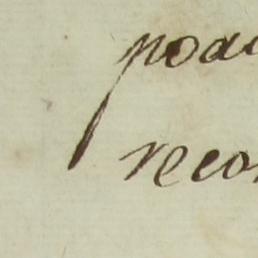 poda
reco